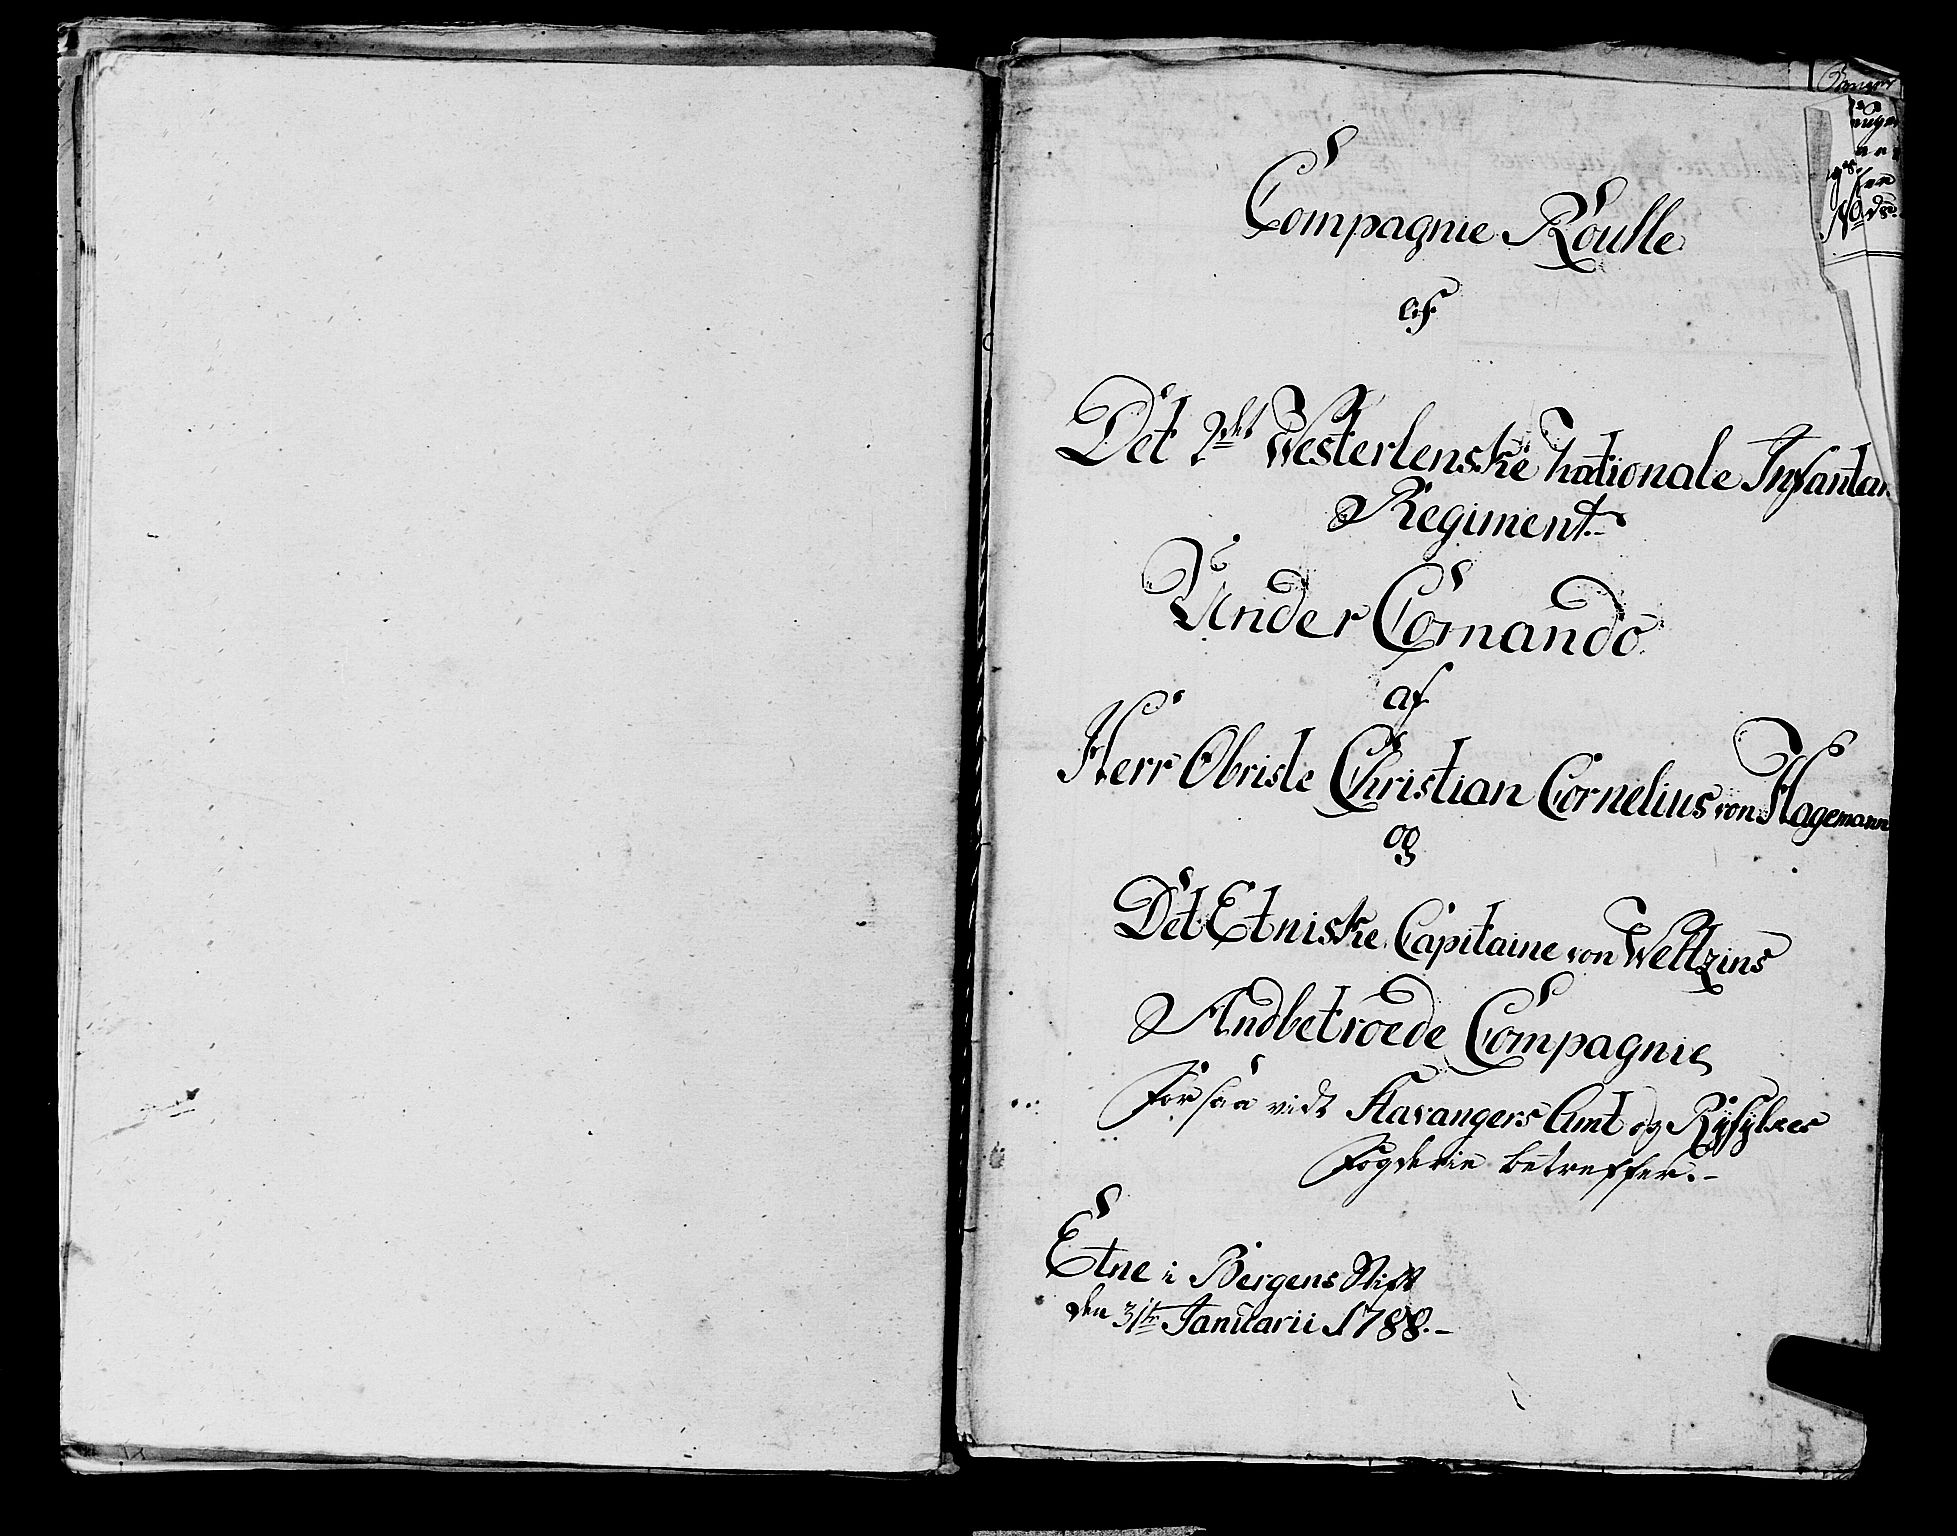 Compagnie Roulle
af
Det 2det Westerlenske nationale Infantar
Regiment.
Under Comando
af
Herr Obriste Christian Cornelius von Hagemann
og
Det Etniske Capitaine von Weltzins
Andbetroede Compagnie
For saa vidt Stavangers Amt og Ryfylkes
Fogderie betreffer.
Etne i Bergens Stift
den 31te Januarii 1788.